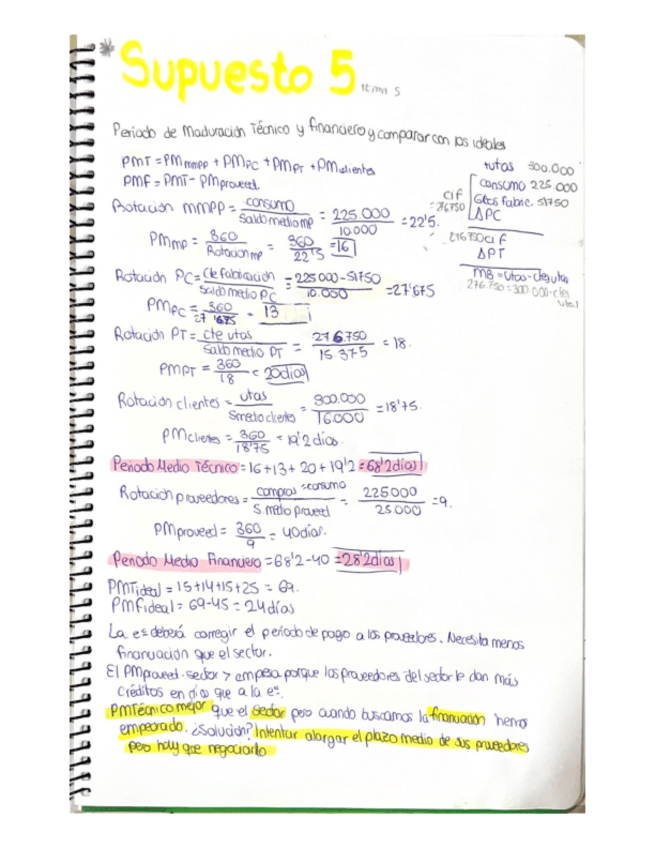 * Supuesto 5 tema 5
Periodo de Maduración Técnico y financiero y comparar con los ideales
PMT = PMmmpp + PMPC + PMPT + PMclientes
PMF = PMT - PMproveed.
vtas 300.000
consumo 225.000
Gtos fabric. 51750
ΔPC
cif = 276750
276750 cif
ΔPT
MB = vtas - cte vtas
276.750 = 300.000 - cte vtas
Rotación MMPP = consumo / Saldo medio mp = 225.000 / 10.000 = 22'5.
PMmp = 360 / Rotación mp = 360 / 22'5 = 16
Rotación PC = Cte fabricación / Saldo medio PC = 225000 - 51750 / 10.000 = 27'675
PMPC = 360 / 27'675 = 13
Rotación PT = cte vtas / Saldo medio PT = 276.750 / 15.375 = 18.
PMPT = 360 / 18 = 20días
Rotación clientes = vtas / S.medio clientes = 300.000 / 16.000 = 18'75.
PMclientes = 360 / 18'75 = 19'2 días.
Periodo Medio Técnico = 16 + 13 + 20 + 19'2 = 68'2días
Rotación proveedores = compras = consumo / S. medio proveed = 225000 / 25.000 = 9.
PMproveed = 360 / 9 = 40días.
Periodo Medio Financiero = 68'2 - 40 = 28'2días
PMTideal = 15 + 14 + 15 + 25 = 69.
PMFideal = 69 - 45 = 24días
La eª deberá corregir el periodo de pago a los proveedores. Necesita menos
financiación que el sector.
El PMproveed. sector > empresa porque los proveedores del sector le dan más
créditos en días que a la eª.
PMTécnico mejor que el sector pero cuando buscamos la financiación hemos
empeorado. ¿Solución? Intentar alargar el plazo medio de sus proveedores
pero hay que negociarlo